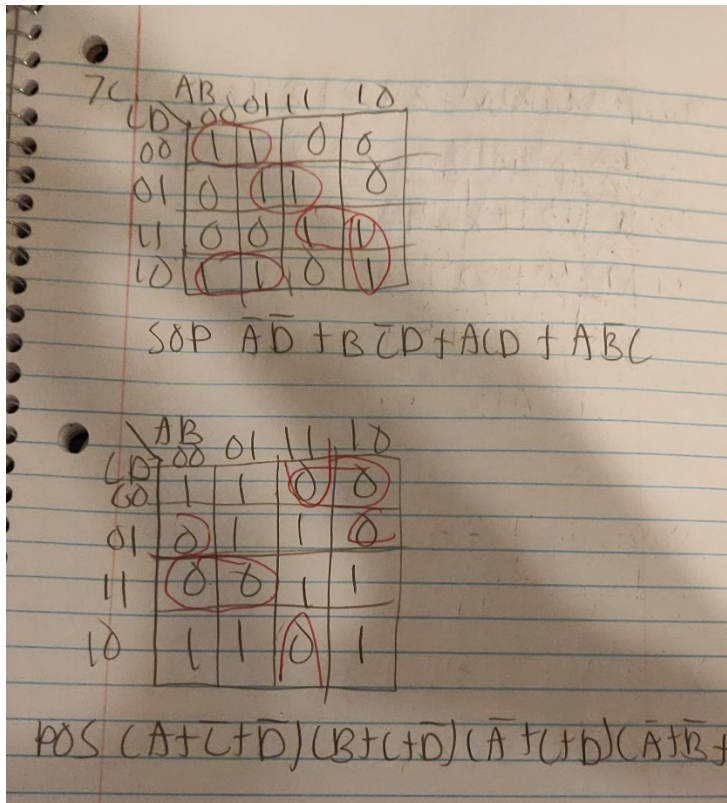 7C AB
CD 00 01 11 10
00 1 1 0 0
01 0 1 1 0
11 0 0 1 1
10 1 1 0 1
SOP A̅D̅ + BC̅D + ACD + AB̅C
AB
CD 00 01 11 10
00 1 1 0 0
01 0 1 1 0
11 0 0 1 1
10 1 1 0 1
POS (A+C̅+D̅)(B+C+D̅)(A̅+C+D)(A̅+B̅+